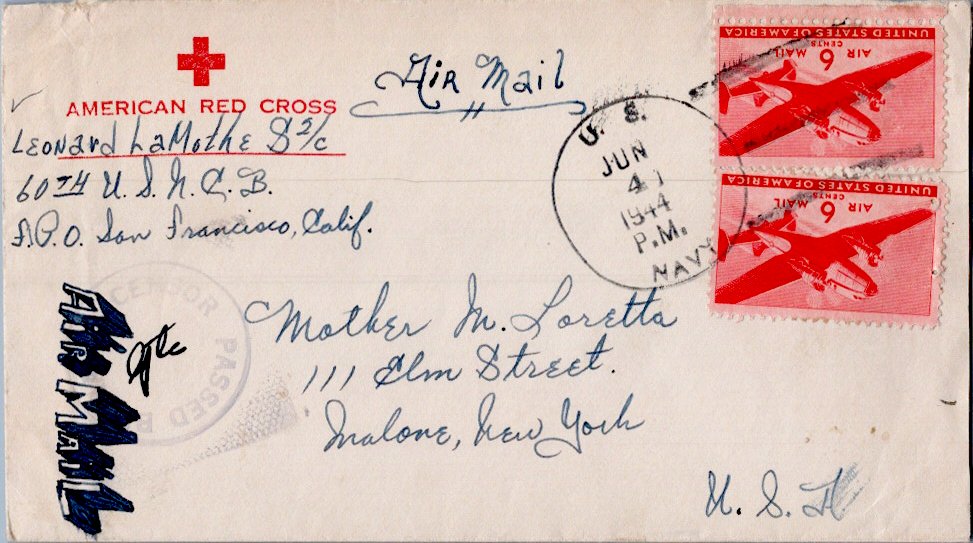 AMERICAN RED CROSS
Leonard LaMothe S 2/c
60TH U.S.N.C.B.
F.P.O. San Francisco, Calif.
Air Mail
U. S.
JUN
4
1944
P.M.
NAVY
UNITED STATES OF AMERICA
6 CENTS
AIR MAIL
UNITED STATES OF AMERICA
6 CENTS
AIR MAIL
CENSOR
PASSED
AIR MAIL
Mother M. Loretta
111 Elm Street.
Malone, New York
U. S. A